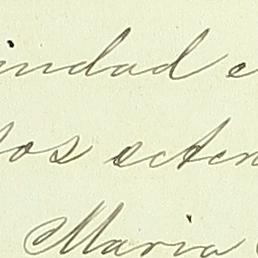 indad e
tos octen
Maria